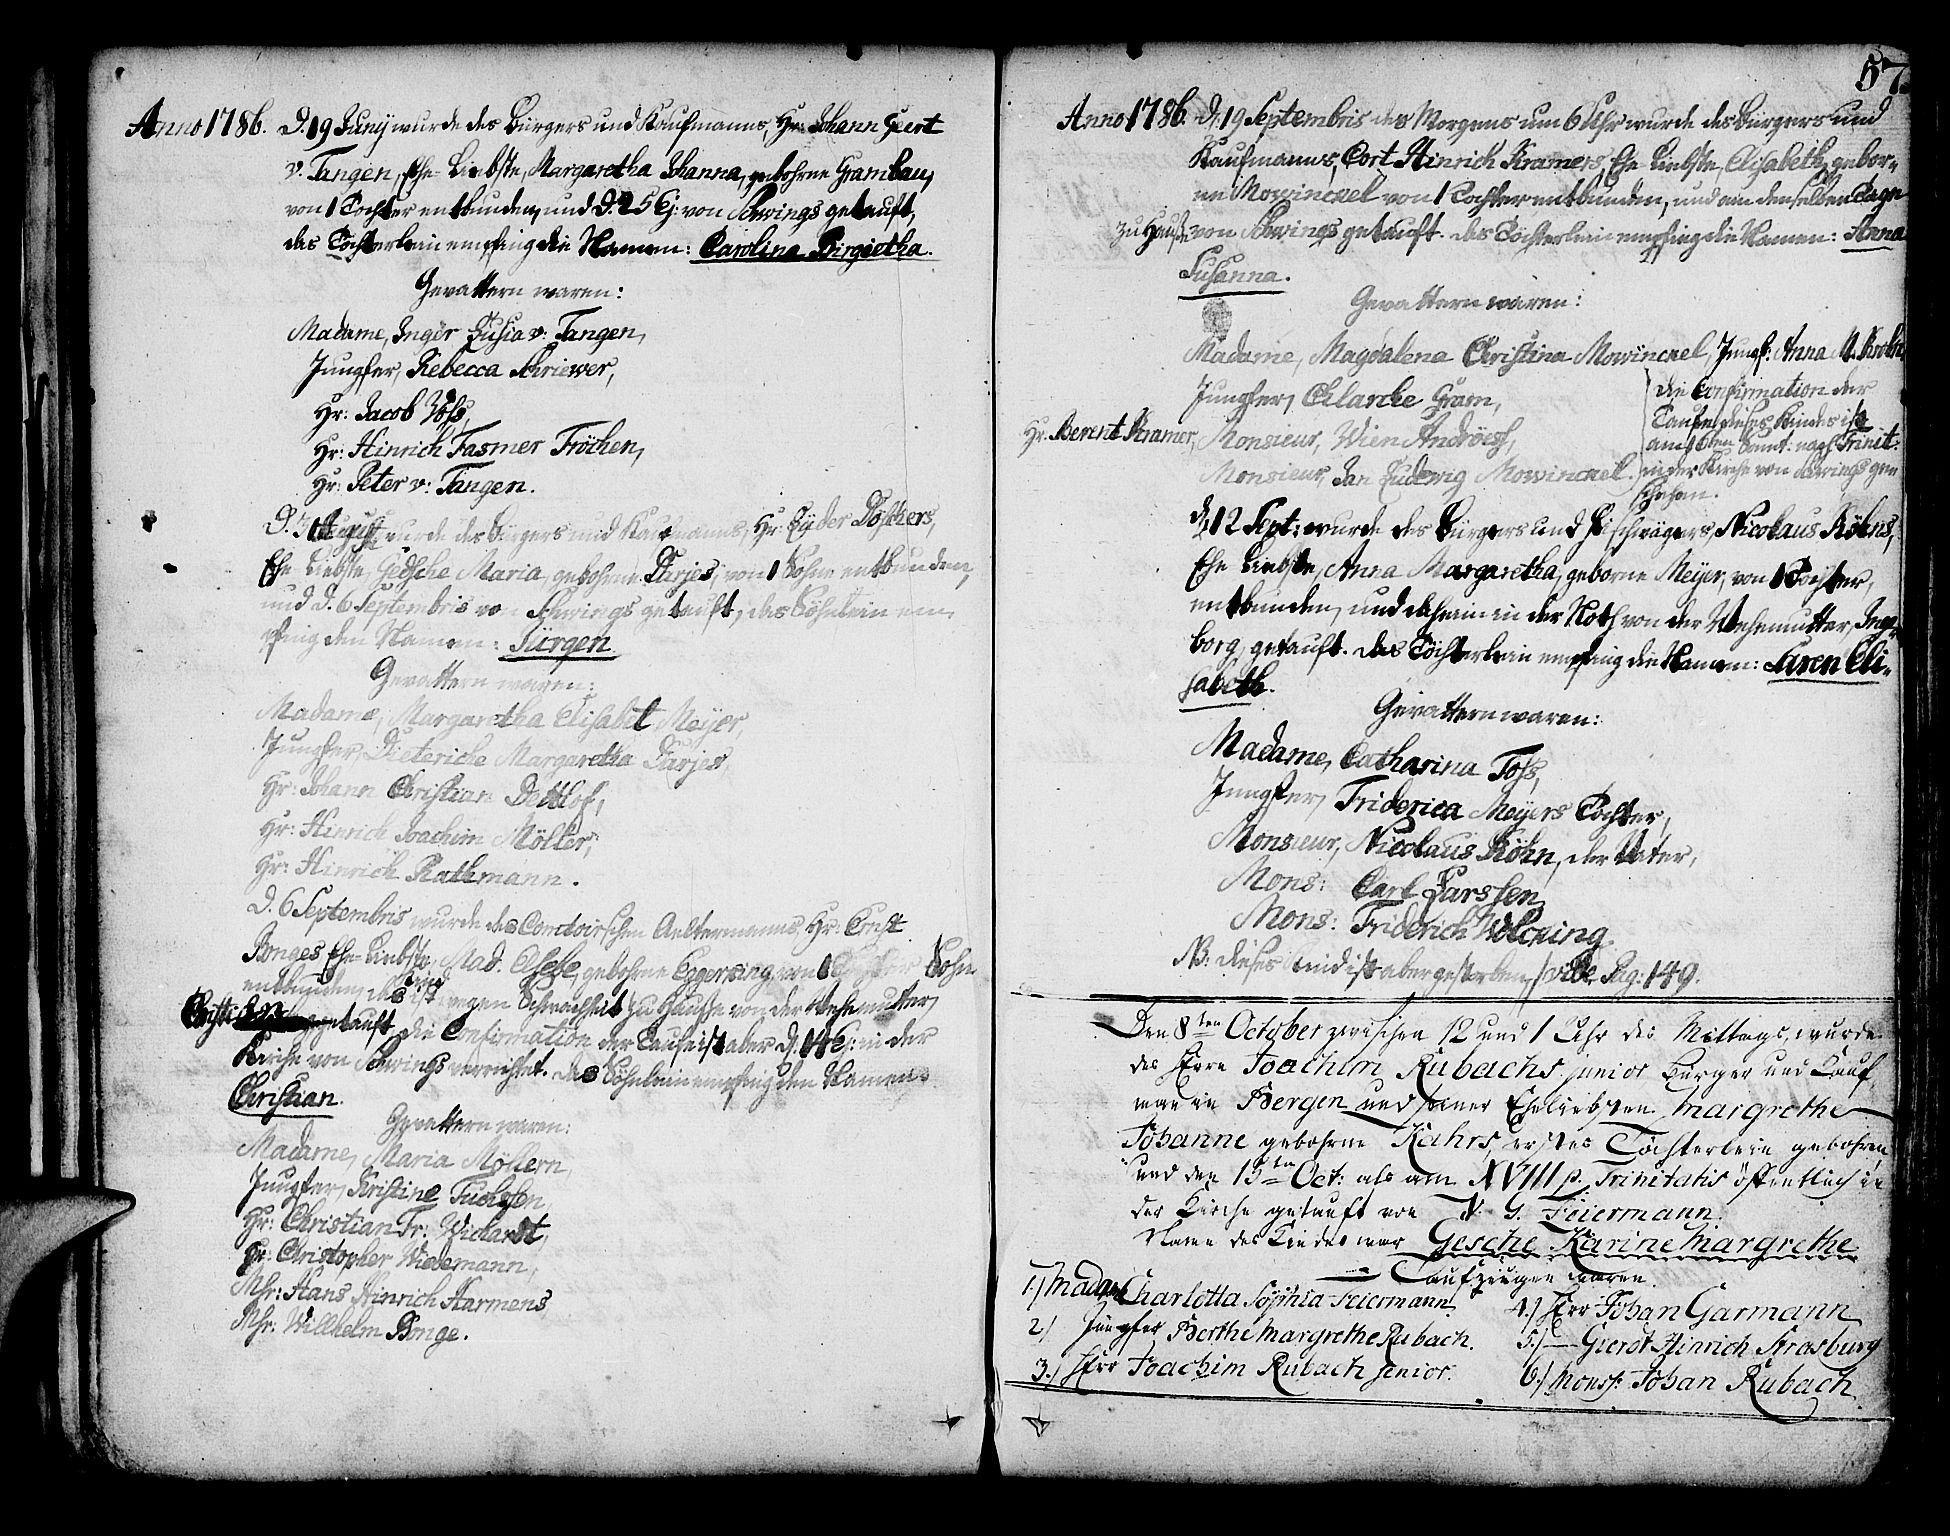 Anno 1786. D. 19 Junij wurde des Bürgers und Kaufmanns, Hr: Johann Geert
v. Tangen, Ehe-Liebste, Margaretha Johanna, gebohrne Grambau,
von 1 Tochter entbunden, und d. 25 Ej: von Schwings getauft,
das Töchterlein empfing die Namen: Carolina Birgietha.
Gevattern waren:
Madame, Inger Lusia v: Tangen,
Jungfer, Rebecca Schriewer,
Hr: Jacob Voss,
Hr: Hinrich Fasmer Fröchen,
Hr: Peter v: Tangen.
D. August wurde des Bürgers und Kaufmanns, Hr: Lüder Döschers,
Ehe-Liebste, Gedsche Maria, gebohrne Darjes, von 1 Sohne entbunden,
und d. 6 Septembris von Schwings getauft, das Söhnlein em-
pfing den Namen: Jürgen
Gevattern waren:
Madame, Margaretha Elisabet Meyer,
Jungfer, Dietericke Margaretha Darjes,
Hr: Johann Christian Dettlof,
Hr: Hinrich Joachim Möller,
Hr: Hinrich Rathmann.
D. 6 Septembris wurde des Contoirschen Aeltermanns, Hr: Ernst
Bonges Ehe-Liebste, Mad. Elsebe, gebohrne Eggersing, von 1 Sohn
entbunden, das Kind ist wegen Schwachheit zu Hause von der Wehemutter,
getauft, die Confirmation der Taufe ist aber d. 14 Ej: in der
Kirche von Schwings verrichtet. das Söhnlein empfing den Namen:
Christian.
Gevattern waren:
Madame, Maria Möllern,
Jungfer, Kristine Tuchsen,
Hr: Christian Fr: Wichardt,
Hr: Christopher Wiedemann,
Mhr: Hans Hinrich Harmens
Mhr: Willhelm Bonge.
57.
Anno 1786. D. 19 Septembris des Morgens um 6 Uhr wurde des Bürgers und
Kaufmanns, Cort Hinrich Kramers, Ehe-Liebste, Elisabeth, gebor-
ne Mowinckel von 1 Tochter entbunden, und an demselben Tage
zu Hause von Schwings getauft. das Töchterlein empfing die Namen: Anna
Susanna.
Gevattern waren:
Madame, Magdalena Christina Mowinckel, Jungf: Anna M. Krohn
Jungfer, Chlarcke Gram,
Hr: Berent Kramer, Monsieur, Wien Andröes,
Monsieur, Jan Ludewig Mowinckel.
Die Confirmation der
Taufe dieses Kindes ist
am 16ten Sont: nach Trinit:
in der Kirche von Schwings ge-
schehen.
D. 12 Sept: wurde des Bürgers und Fischwägers, Nicolaus Köhns,
Ehe-Liebste, Anna Margaretha, geborne Meyer, von 1 Tochter,
entbunden, und daheim in der Noth von der Wehemutter, Inge-
borg, getauft. das Töchterlein empfing die Namen: Karen Eli-
sabeth.
Gevattern waren:
Madame, Catharina Foss,
Jungfer, Friderica Meyers Tochter,
Monsieur, Nicolaus Köhn, der Vater,
Mons: Carl Larssen
Mons: Friderich Wolcning.
NB: dieses Kind ist aber gestorben, vide Pag: 149.
Den 8ten October zwischen 12 und 1 Uhr des Mittags, wurde
des Herrn Joachim Rubachs junior Bürger und Kauf
man in Bergen und seiner Eheliebsten Margrethe
Johanne gebohrne Kahrs, erstes Töchterlein gebohren,
und den 15ten Oct: als am XVIII p. Trinitatis öffentlich in
der Kirche getauft von N. G. Feiermann.
Name des Kindes war Gesche Karine Margrethe
Taufzeugen waren.
1.) Madame Charlotta Sophia Feiermann
2.) Jungfer Berthe Margrethe Rubach.
3.) Herr Joachim Rubach senior.
4.) Herr Johan Garmann
5.) — Gierdt Hinrich Strasburg
6.) Monsr: Johan Rubach